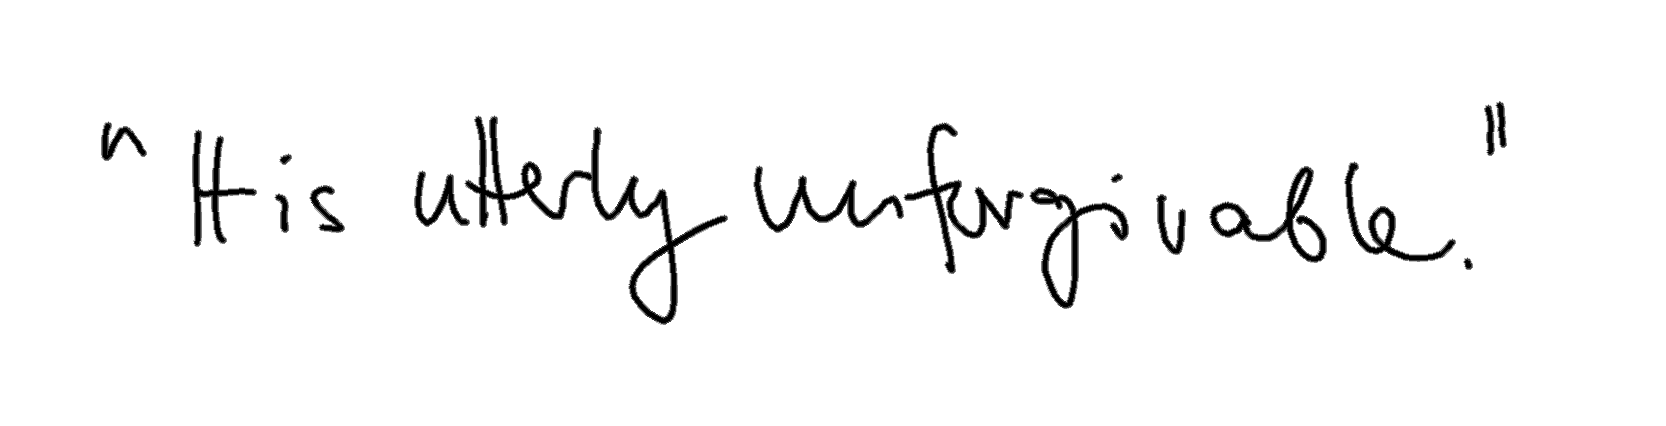 "His utterly unforgivable."